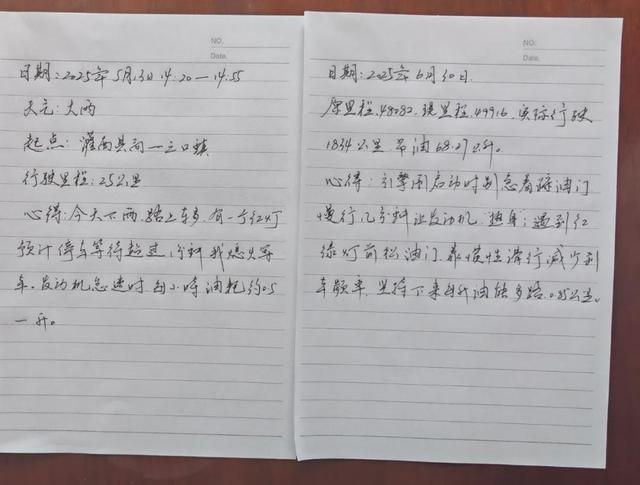 NO.
Date.
日期:2025年5月13日 14:20—14:55
天气:大雨
起点:灌南县商一三口镇
行驶里程:25公里
心得:今天下雨,路上车多,有一个红灯
预计停车等待超过1分钟我熄火等
车。发动机怠速时,每小时油耗约0.5
一升。
NO.
Date.
日期:2025年6月30日.
原里程.48082.现里程.49916.实际行驶
1834公里 加油68.27公升。
心得:引擎刚启动时别急着踩油门
慢行几分钟让发动机.热车;遇到红
绿灯前松油门.靠惯性滑行减少刹
车频率.坚持下来每升油能多跑.0.85公里。